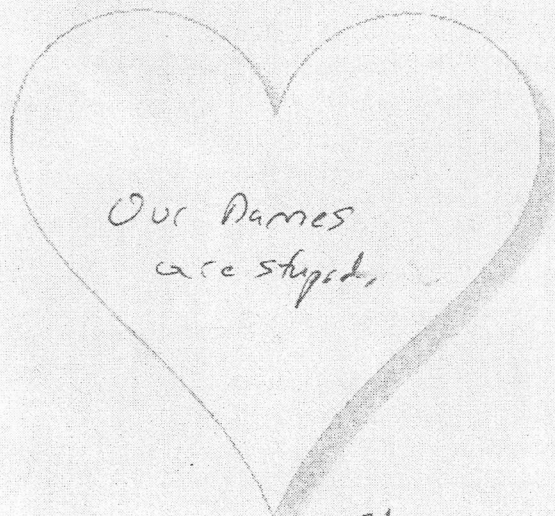 Our Names
are stupid.